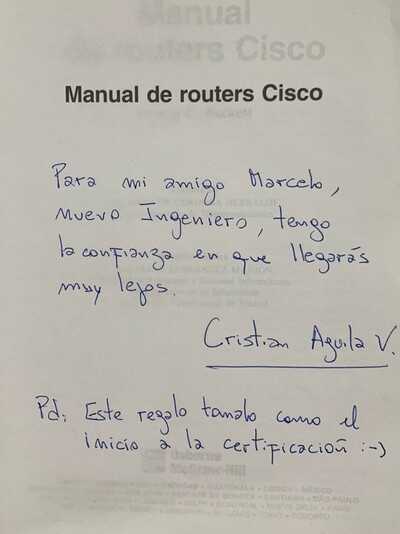 Manual
de routers Cisco
Manual de routers Cisco
Para mi amigo Marcelo,
nuevo Ingeniero, tengo
la confianza en que llegarás
muy lejos.
Cristian Aguila V.
Pd: Este regalo tomalo como el
inicio a la certificación :-)
Osborne
McGraw-Hill